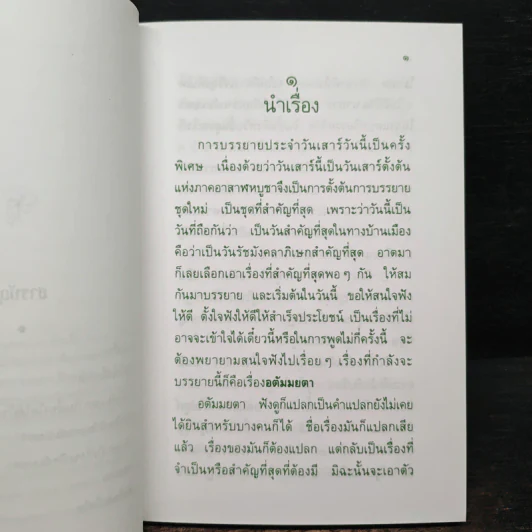 ๑
๑
นำเรื่อง
การบรรยายประจำวันเสาร์วันนี้เป็นครั้ง
พิเศษ เนื่องด้วยว่าวันเสาร์นี้เป็นวันเสาร์ตั้งต้น
แห่งภาคอาสาฬหบูชาจึงเป็นการตั้งต้นการบรรยาย
ชุดใหม่ เป็นชุดที่สำคัญที่สุด เพราะว่าวันนี้เป็น
วันที่ถือกันว่า เป็นวันสำคัญที่สุดในทางบ้านเมือง
คือว่าเป็นวันรัชมังคลาภิเษกสำคัญที่สุด อาตมา
ก็เลยเลือกเอาเรื่องที่สำคัญที่สุดพอๆ กัน ให้สม
กันมาบรรยาย และเริ่มต้นในวันนี้ ขอให้สนใจฟัง
ให้ดี ตั้งใจฟังให้ดีให้สำเร็จประโยชน์ เป็นเรื่องที่ไม่
อาจจะเข้าใจได้เดี๋ยวนี้หรือในการพูดไม่กี่ครั้งนี้ จะ
ต้องพยายามสนใจฟังไปเรื่อยๆ เรื่องที่กำลังจะ
บรรยายนี้ก็คือเรื่องอตัมมยตา
อตัมมยตา ฟังดูก็แปลกเป็นคำแปลกยังไม่เคย
ได้ยินสำหรับบางคนก็ได้ ชื่อเรื่องมันก็แปลกเสีย
แล้ว เรื่องของมันก็ต้องแปลก แต่กลับเป็นเรื่องที่
จำเป็นหรือสำคัญที่สุดที่ต้องมี มิฉะนั้นจะเอาตัว